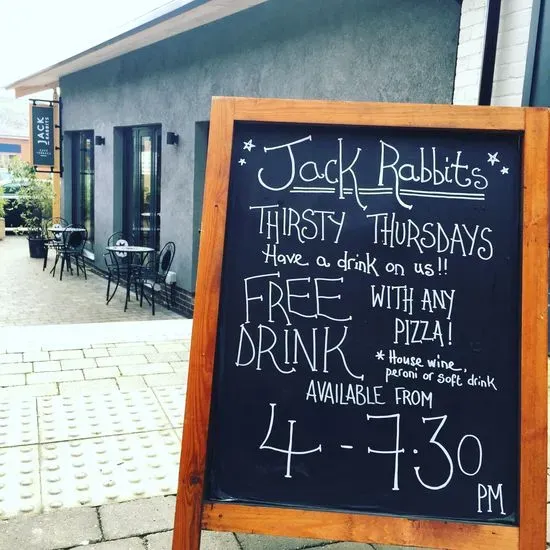 JACK
RABBITS
Jack Rabbits
THIRSTY THURSDAYS
Have a drink on us!!
FREE
DRINK
WITH ANY
PIZZA!
* House wine,
peroni or soft drink
AVAILABLE FROM
4 - 7.30
PM